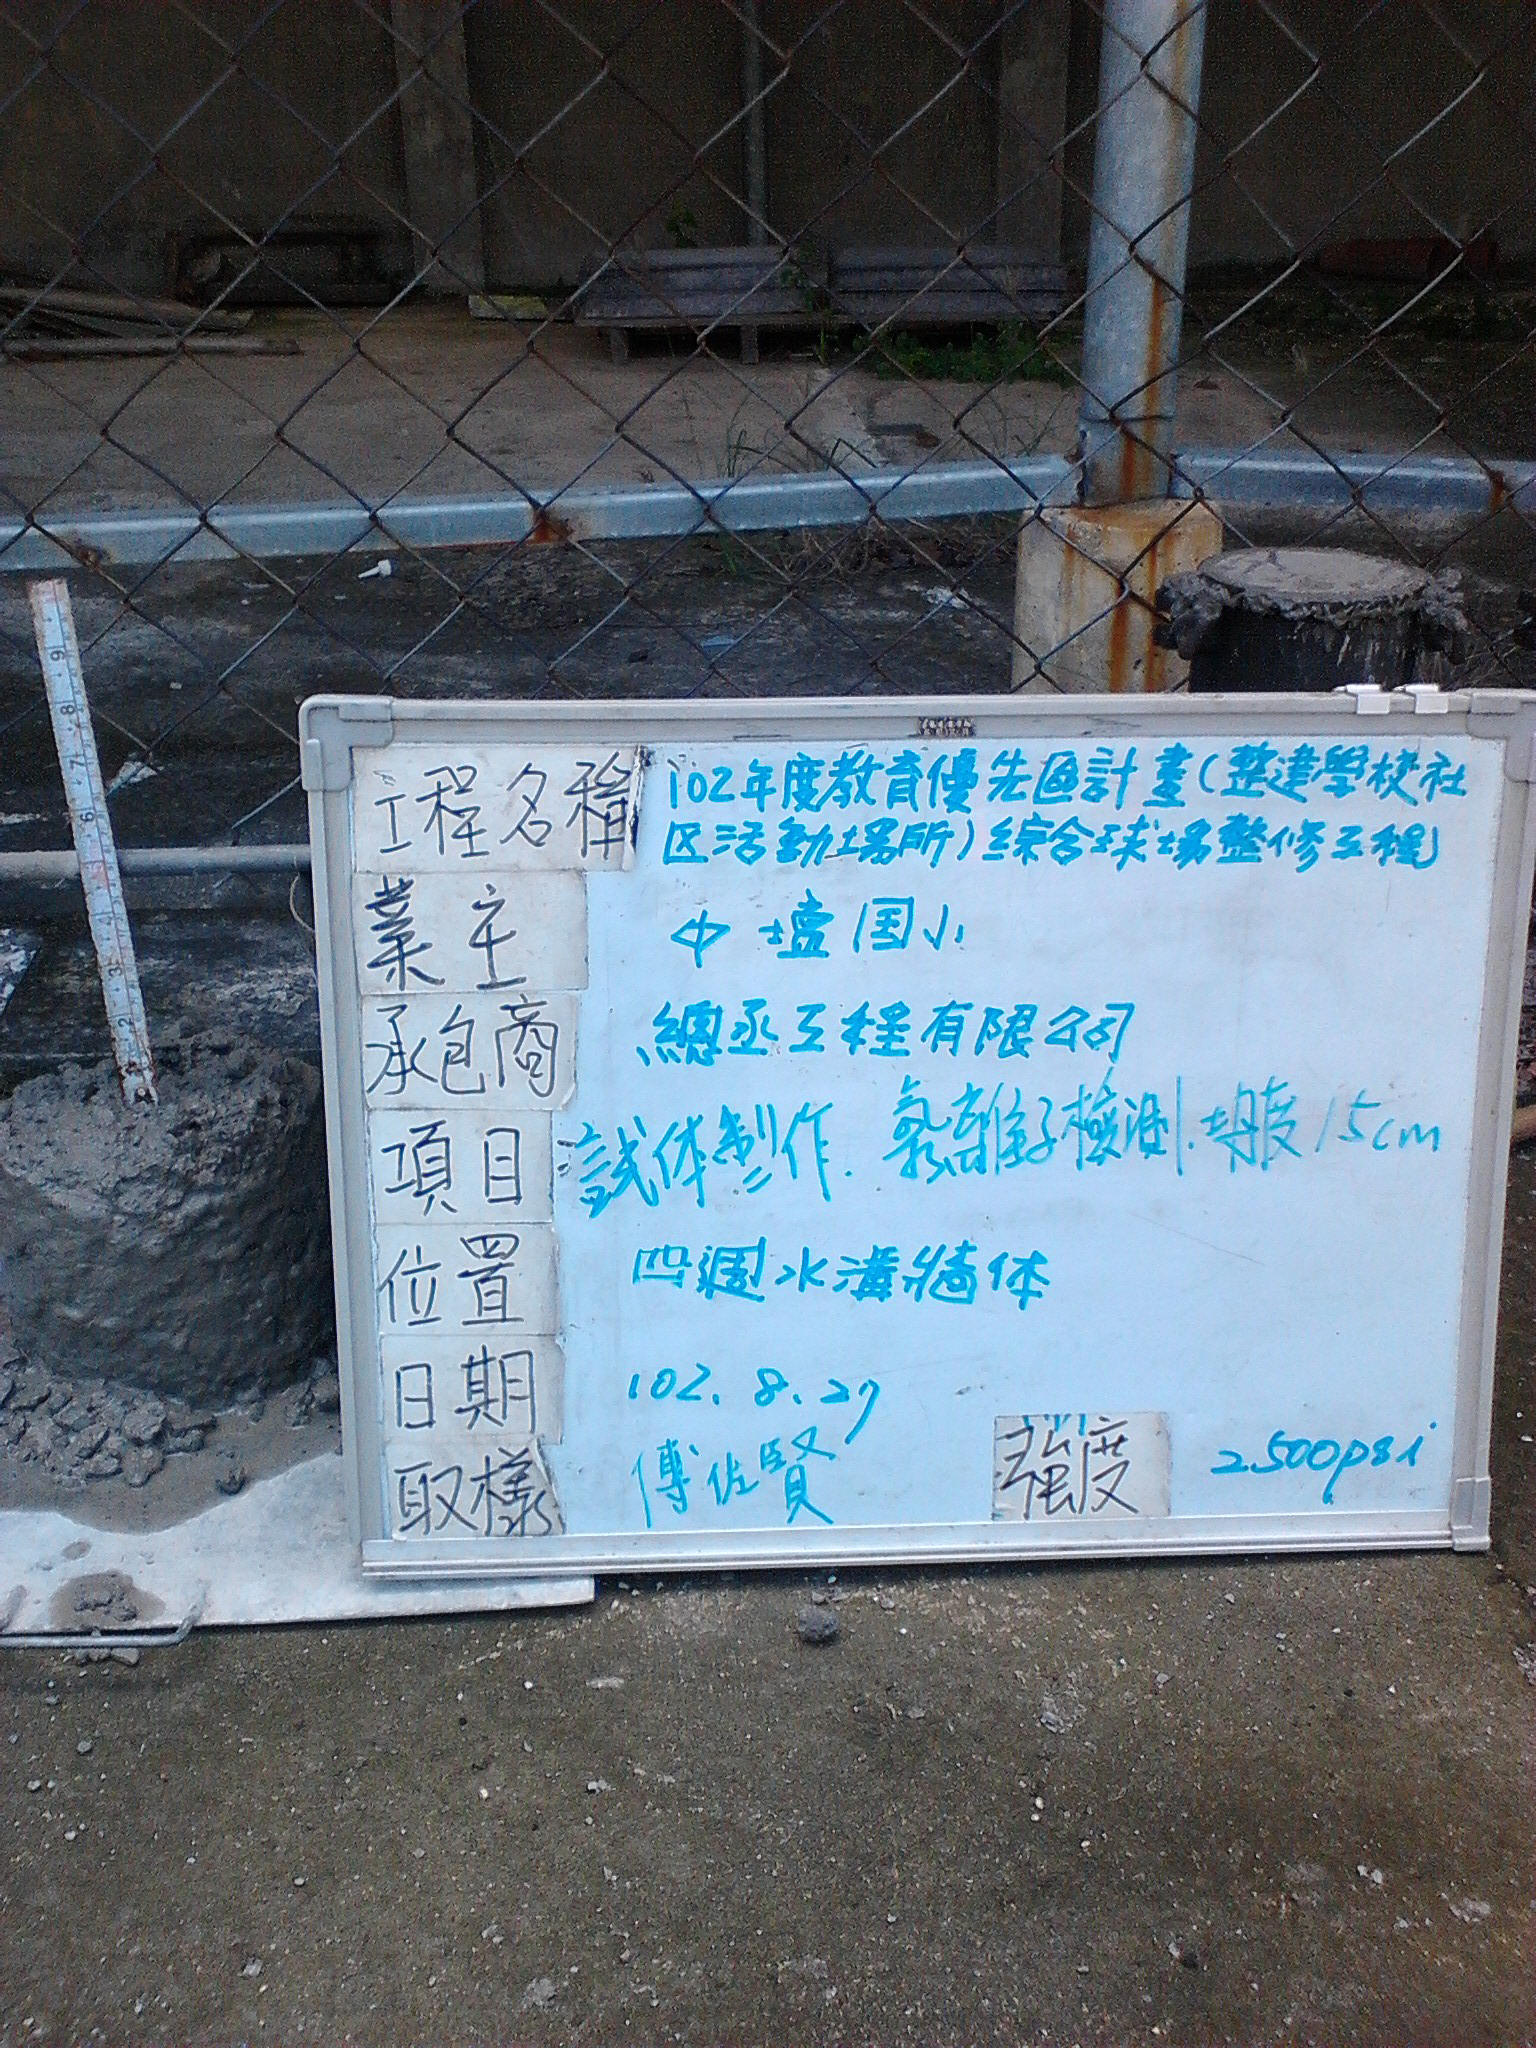 工程名稱 102年度教育優先區計畫(整建學校社
区活動場所)綜合球場整修工程
業主 中壇国小
承包商 總丞工程有限公司
項目 試体製作.氯離子檢測.坍度15cm
位置 四週水溝牆体
日期 102.8.27
取樣 傅佐賢 強度 2500psi
9
8
7
6
3
2